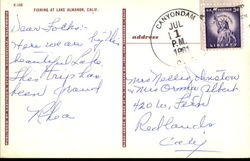 K-108
FISHING AT LAKE ALMANOR, CALIF.
Dear Folks:-
Here we are by this
beautiful lake.
This trip has
been grand
Rhea
CANYONDAM
JUL
1
PM
1961
address
LIBERTY
Mrs Nellie
& Mrs Orma Albert
420 W. Fern
Redlands
Calif